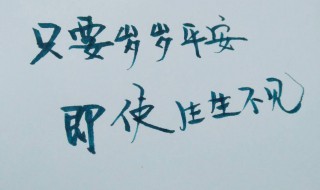 只要岁岁平安
即使生生不见